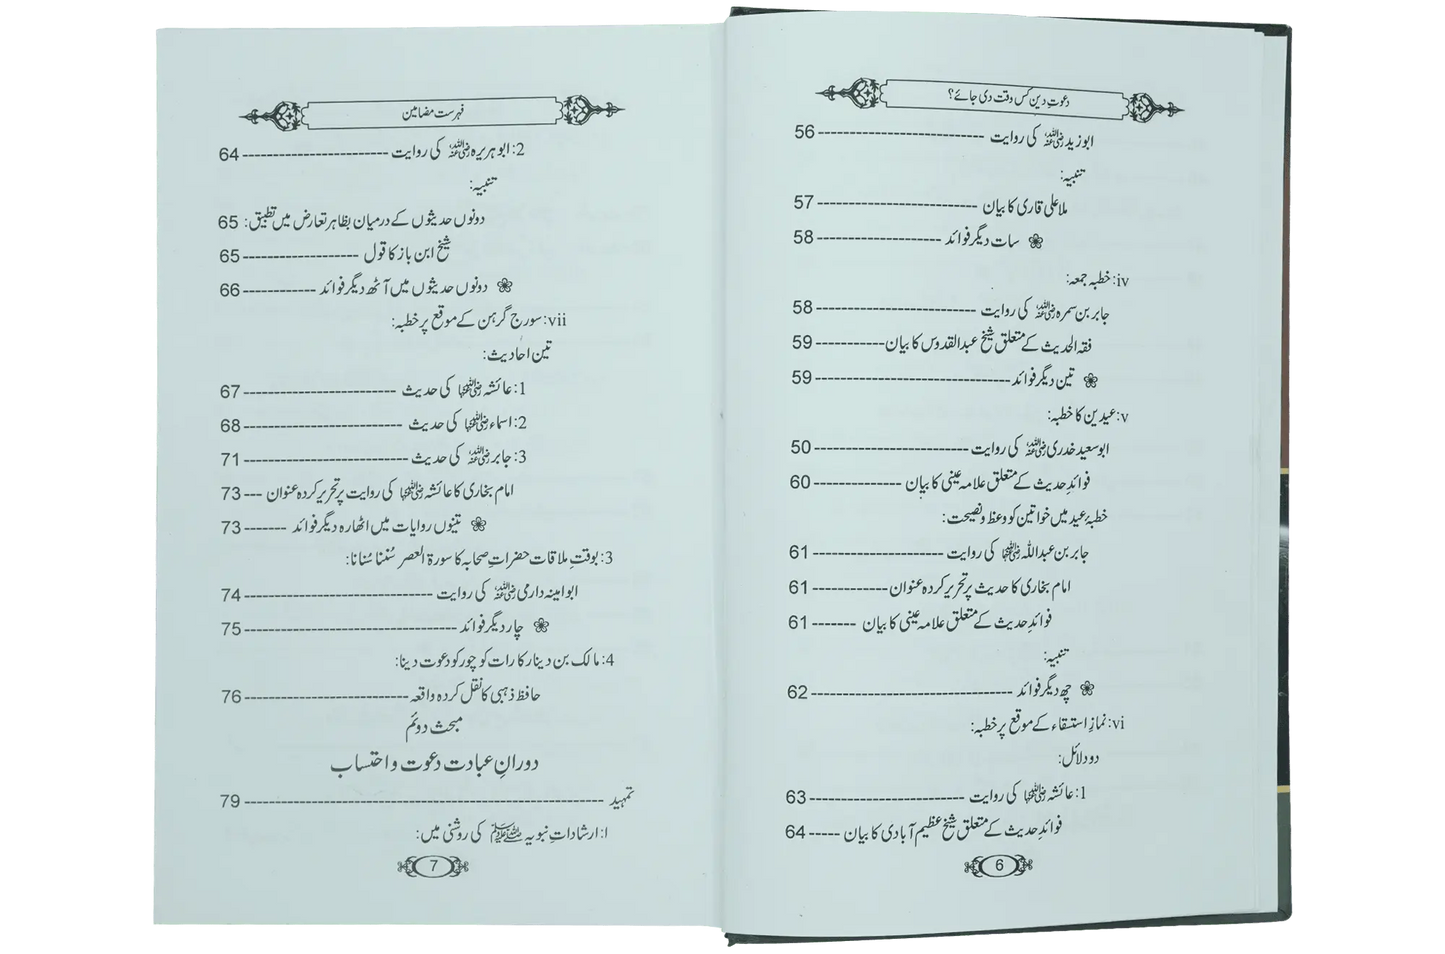 دعوتِ دین کس وقت دی جائے؟
ابوزید رضی اللہ عنہ کی روایت ---------------------------- 56
تنبیہ:
ملا علی قاری کا بیان --------------------------- 57
❀ سات دیگر فوائد --------------------- 58
iv: خطبہ جمعہ:
جابر بن سمرہ رضی اللہ عنہ کی روایت --------------------------- 58
فقہ الحدیث کے متعلق شیخ عبدالقدوس کا بیان ------------ 59
❀ تین دیگر فوائد --------------------------------- 59
v: عیدین کا خطبہ:
ابوسعید خدری رضی اللہ عنہ کی روایت -------------------------- 50
فوائدِ حدیث کے متعلق علامہ عینی کا بیان --------------- 60
خطبۂ عید میں خواتین کو وعظ و نصیحت:
جابر بن عبداللہ رضی اللہ عنہما کی روایت ---------------------- 61
امام بخاری کا حدیث پر تحریر کردہ عنوان ------------- 61
فوائدِ حدیث کے متعلق علامہ عینی کا بیان -------- 61
تنبیہ:
❀ چھ دیگر فوائد ---------------------------------- 62
vi: نمازِ استسقاء کے موقع پر خطبہ:
دو دلائل:
1: عائشہ رضی اللہ عنہا کی روایت -------------------------- 63
فوائدِ حدیث کے متعلق شیخ عظیم آبادی کا بیان ----- 64
6
فہرست مضامین
2: ابوہریرہ رضی اللہ عنہ کی روایت ------------------------ 64
تنبیہ:
دونوں حدیثوں کے درمیان بظاہر تعارض میں تطبیق: 65
شیخ ابن باز کا قول ------------------- 65
❀ دونوں حدیثوں میں آٹھ دیگر فوائد ------------ 66
vii: سورج گرہن کے موقع پر خطبہ:
تین احادیث:
1: عائشہ رضی اللہ عنہا کی حدیث ------------------------- 67
2: اسماء رضی اللہ عنہا کی حدیث -------------------------- 68
3: جابر رضی اللہ عنہ کی حدیث --------------------------- 71
امام بخاری کا عائشہ رضی اللہ عنہا کی روایت پر تحریر کردہ عنوان --- 73
❀ تینوں روایات میں اٹھارہ دیگر فوائد ------- 73
3: بوقتِ ملاقات حضراتِ صحابہ کا سورۃ العصر سُننا سُنانا:
ابوامینہ دارمی رضی اللہ عنہ کی روایت ------------------------------- 74
❀ چار دیگر فوائد ----------------------------------- 75
4: مالک بن دینار کا رات کو چور کو دعوت دینا:
حافظ ذہبی کا نقل کردہ واقعہ --------------------------- 76
مبحث دوئم
دورانِ عبادت دعوت و احتساب
تمہید ------------------------------------------------------------ 79
ا: ارشاداتِ نبویہ ﷺ کی روشنی میں:
7